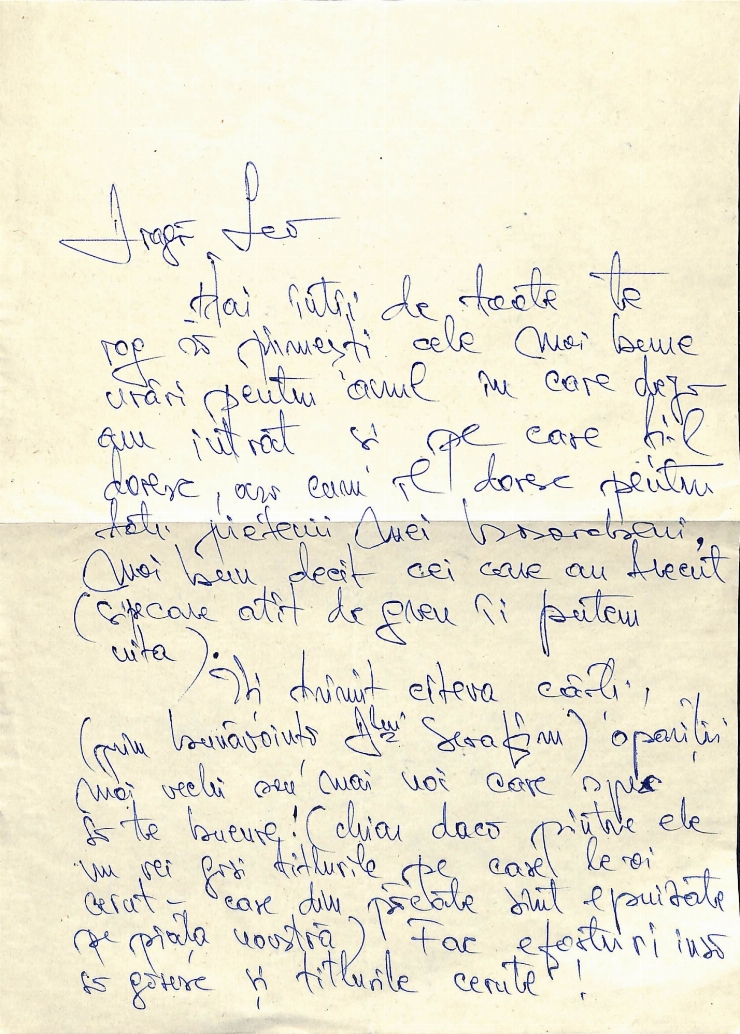 Dragă Leo
Mai întîi de toate te
rog să primești cele mai bune
urări pentru anul în care deja
am intrat și pe care ți-l
doresc, așa cum îl doresc pentru
toți prietenii mei basarabeni,
mai bun decît cei care au trecut
(și pe care atît de greu îi putem
uita).
Îți trimit cîteva cărți,
(prin bunăvoința Dlui Serafim) apariții
mai vechi sau mai noi care sper
să te bucure! (chiar dacă printre ele
nu vei găsi titlurile pe care le-ai
cerut – care din păcate sînt epuizate
pe piața noastră) Fac eforturi însă
să găsesc și titlurile cerute!